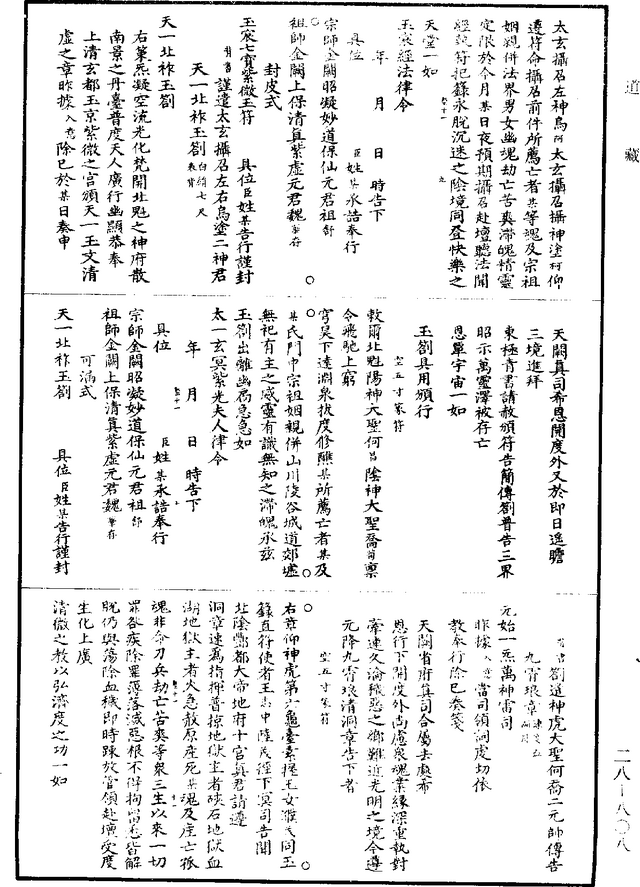 道藏
太玄攝召左神烏阿太玄攝召攝神塗柯仰
遵符命攝召前件所薦亡者某等魂及宗祖
姻親併法界男女幽魂劫亡苦爽滯魄情靈
定限於今月某日夜預期攝召赴壇聽法聞
經執符把籙永脫沉迷之陰境同登快樂之
天堂一如
玉宸經法律令
年月日時告下
具位臣姓某承誥奉行
宗師金闕昭凝妙道保仙元君祖
祖師金闕上保清真紫虛元君魏
封皮式
玉宸七寶紫微玉符具位臣姓某告行謹封
謹遣太玄攝召左右烏塗二神君
天一北祚玉劄白絹七尺
天一北祚玉劄
右篆炁凝空流光化梵開北魁之神府散
南景之丹臺普度天人廣行幽顯恭奉
上清玄都玉京紫微之宮頒天一玉文清
虛之章昨據入意除已於某日奏申
天闕真司希恩開度外又於即日遙瞻
三境進拜
東極青書請赦頒符告簡傳劄普告三界
昭示萬靈澤被存亡
恩覃宇宙一如
玉劄具用頒行
空五寸篆符
敕爾北魁陽神大聖何昌陰神大聖喬苟稟
令飛馳上窮
穹昊下達淵泉拔度修醮某所薦亡者某及
某氏門中宗祖姻親併山川陵谷城道郊墟
無祀有主之惑靈有識無知之滯魄承茲
玉劄出離幽扃急急如
太一玄冥紫光夫人律令
年月日時告下
具位臣姓某承誥奉行
宗師金闕昭凝妙道保仙元君祖
祖師金闕上保清真紫虛元君魏
可漏式
天一北祚玉劄具位臣姓某告行謹封
劄遣神虎大聖何喬二元帥傳告
九霄琅章
元始一炁萬神雷司
昨據入意當司領詞虔切依
教奉行除已奏箋
天闕省府真司合屬去處希
恩行下開度外尚慮衆魂業緣深重執對
牽連久淪穢惡之鄉難近光明之境今遵
元降九霄琅清洞章告下者
空五寸篆符
右章仰神虎第六龜臺素握王女灌氏同玉
籙直符使者王志中陸茂徑下冥司告聞
北陰酆都大帝地府十宮真君請遵
洞章速為指揮普掠地獄主者硤石地獄血
湖地獄主者火急赦原產死某魂及產亡孤
魂非命刃兵劫亡苦爽等衆三生以來一切
罪咎疾除羅酆落滅惡根不得拘留悉皆解
脫仍與蕩除血穢即時踈放管領赴壇受度
生化上廣
清微之教以弘濟度之功一如
二八一八〇八